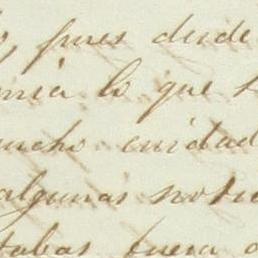 pues desde
mia lo que
mucho cuidad
algunas notic
tabas fuera d